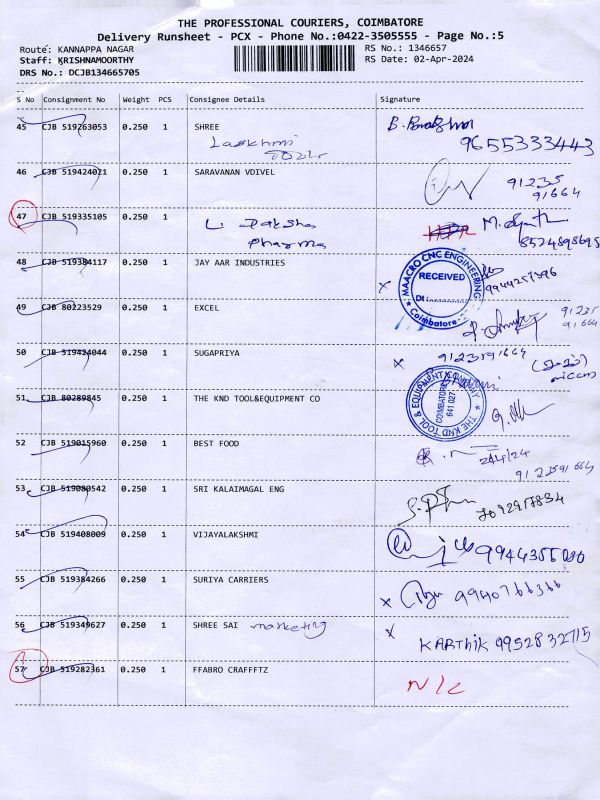 THE PROFESSIONAL COURIERS, COIMBATORE
Delivery Runsheet - PCX - Phone No.:0422-3505555 - Page No.:5
Route: KANNAPPA NAGAR RS No.: 1346657
Staff: KRISHNAMOORTHY RS Date: 02-Apr-2024
DRS No.: DCJB134665705
S No Consignment No Weight PCS Consignee Details Signature
45 CJB 519263053 0.250 1 SHREE
9655333443
46 CJB 519424021 0.250 1 SARAVANAN VDIVEL
91235
91664
47 CJB 519335105 0.250 1 L. Daksha
Pharma
8524898695
48 CJB 519384117 0.250 1 JAY AAR INDUSTRIES
MAACRO CNC ENGINEERING
RECEIVED
Dt:
Coimbatore
9944257396
49 CJB 80223529 0.250 1 EXCEL
91235
91664
50 CJB 519424044 0.250 1 SUGAPRIYA X 9123591664
51 CJB 80289845 0.250 1 THE KND TOOL&EQUIPMENT CO
THE KND TOOL & EQUIPMENT COMPANY
COIMBATORE
641 027
52 CJB 519015960 0.250 1 BEST FOOD
2/4/24
9123591664
53 CJB 519080542 0.250 1 SRI KALAIMAGAL ENG
7092917834
54 CJB 519408009 0.250 1 VIJAYALAKSHMI
55 CJB 519384266 0.250 1 SURIYA CARRIERS X 9940766366
56 CJB 519349627 0.250 1 SHREE SAI marketing X
KARTHIK 9952832715
57 CJB 519282361 0.250 1 FFABRO CRAFFFTZ
N/C